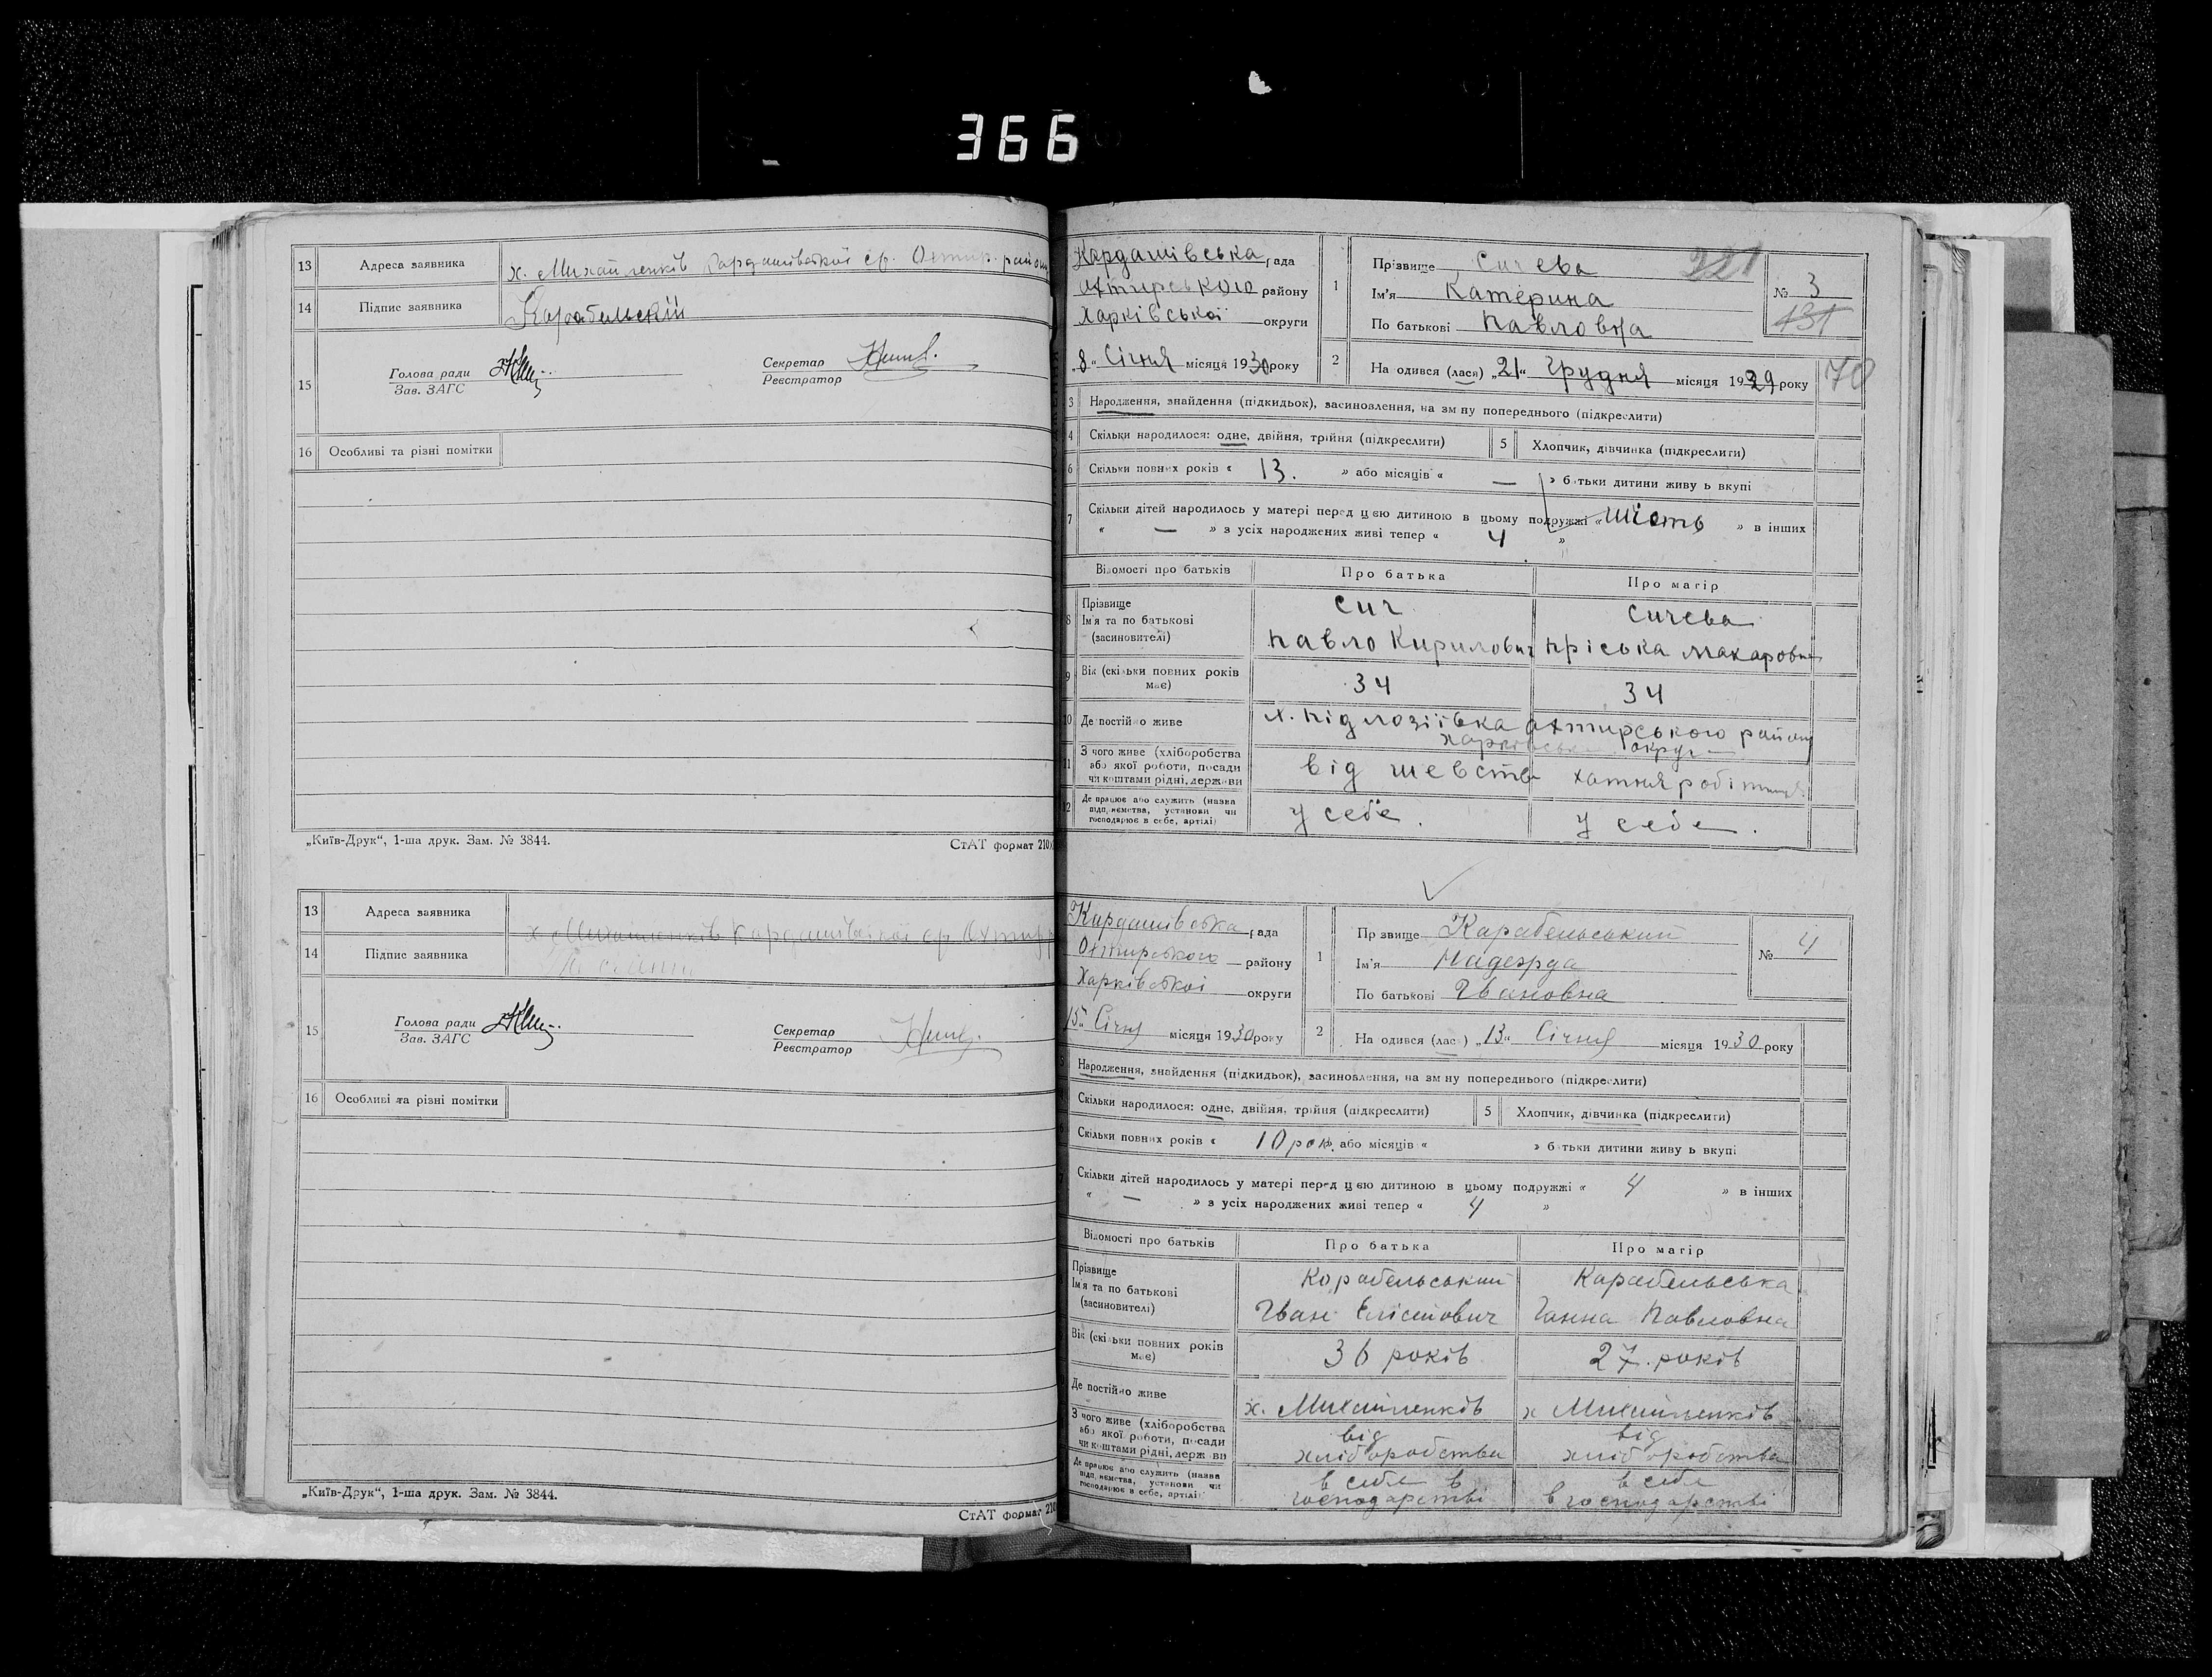 366
13 Адреса заявника х. Михайленків Кардашівської с/р. Охтир. району
14 Підпис заявника Карабельский
15 Голова ради
Зав. ЗАГС
Секретар
Реєстратор
16 Особливі та різні помітки
„Київ-Друк“, 1-ша друк. Зам. № 3844.
СтАТ формат 210
13 Адреса заявника
х. Михайленків Кардашівської с/р Охтир
14 Підпис заявника
15 Голова ради
Зав. ЗАГС
Секретар
Реєстратор
16 Особливі та різні помітки
„Київ-Друк“, 1-ша друк. Зам. № 3844.
СтАТ формат 210
Кардашівська рада
Охтирського району
Харківської округи
„8“ Січня місяця 1930 року
1 Прізвище Сичева
Ім'я Катерина
По батькові Павловна
№ 3
131
2 На одився (лася) „21“ Грудня місяця 1929 року
70
3 Народження, знайдення (підкидьок), засиновлення, на зм ну попереднього (підкреслити)
4 Скільки народилося: одне, двійня, трійня (підкреслити) 5 Хлопчик, дівчинка (підкреслити)
6 Скільки повних років « 13. » або місяців « — » б тьки дитини живу ь вкупі
7 Скільки дітей народилось у матері перед ц єю дитиною в цьому подружжі « шість » в інших
« — » з усіх народжених живі тепер « 4 »
Відомості про батьків Про батька Про матір
8 Прізвище Сич Сичева
Ім'я та по батькові
(засновителі) Павло Кирилович Пріська Макаровна
9 Вік (скільки повних років має) 34 34
10 Де постійно живе х. Підлозіївка Охтирського району
Харківської округи
11 З чого живе (хліборобства
або якої роботи, посади від шевства хатня робітниця
чи коштами рідні, держави
12 Де працює або служить (назва
підп, иємства, установи чи у себе. у себе.
господарює в себе, артілі)
Кардашівська рада
Охтирського району
Харківської округи
15“ Січня місяця 1930 року
1 Пр звище Карабельський
Ім'я Надезрда
По батькові Івановна
№ 4
2 На одився (лас ) „13“ Січня місяця 1930 року
Народження, знайдення (підкидьок), засиновлення, на зм ну попереднього (підкреслити)
Скільки народилося: одне, двійня, трійня (підкреслити) 5 Хлопчик, дівчинка (підкреслити)
Скільки повних років « 10 рок. » або місяців « » б тьки дитини живу ь вкупі
Скільки дітей народилось у матері перед ц єю дитиною в цьому подружжі « 4 » в інших
« — » з усіх народжених живі тепер « 4 »
Відомості про батьків Про батька Про матір
Прізвище Корабельський Карабельська
Ім'я та по батькові
(засновителі) Іван Ганна Павловна
Вік (скільки повних років має) 36 років 27. років
Де постійно живе х. Михайленків х Михайленків
З чого живе (хліборобства від від
або якої роботи, посади
чи коштами рідні, держ ви хліборобства хліборобства
Де працює або служить (назва в себе в в себе
підп, иємства, установи чи
господарює в себе, артілі) господарстві в господарстві